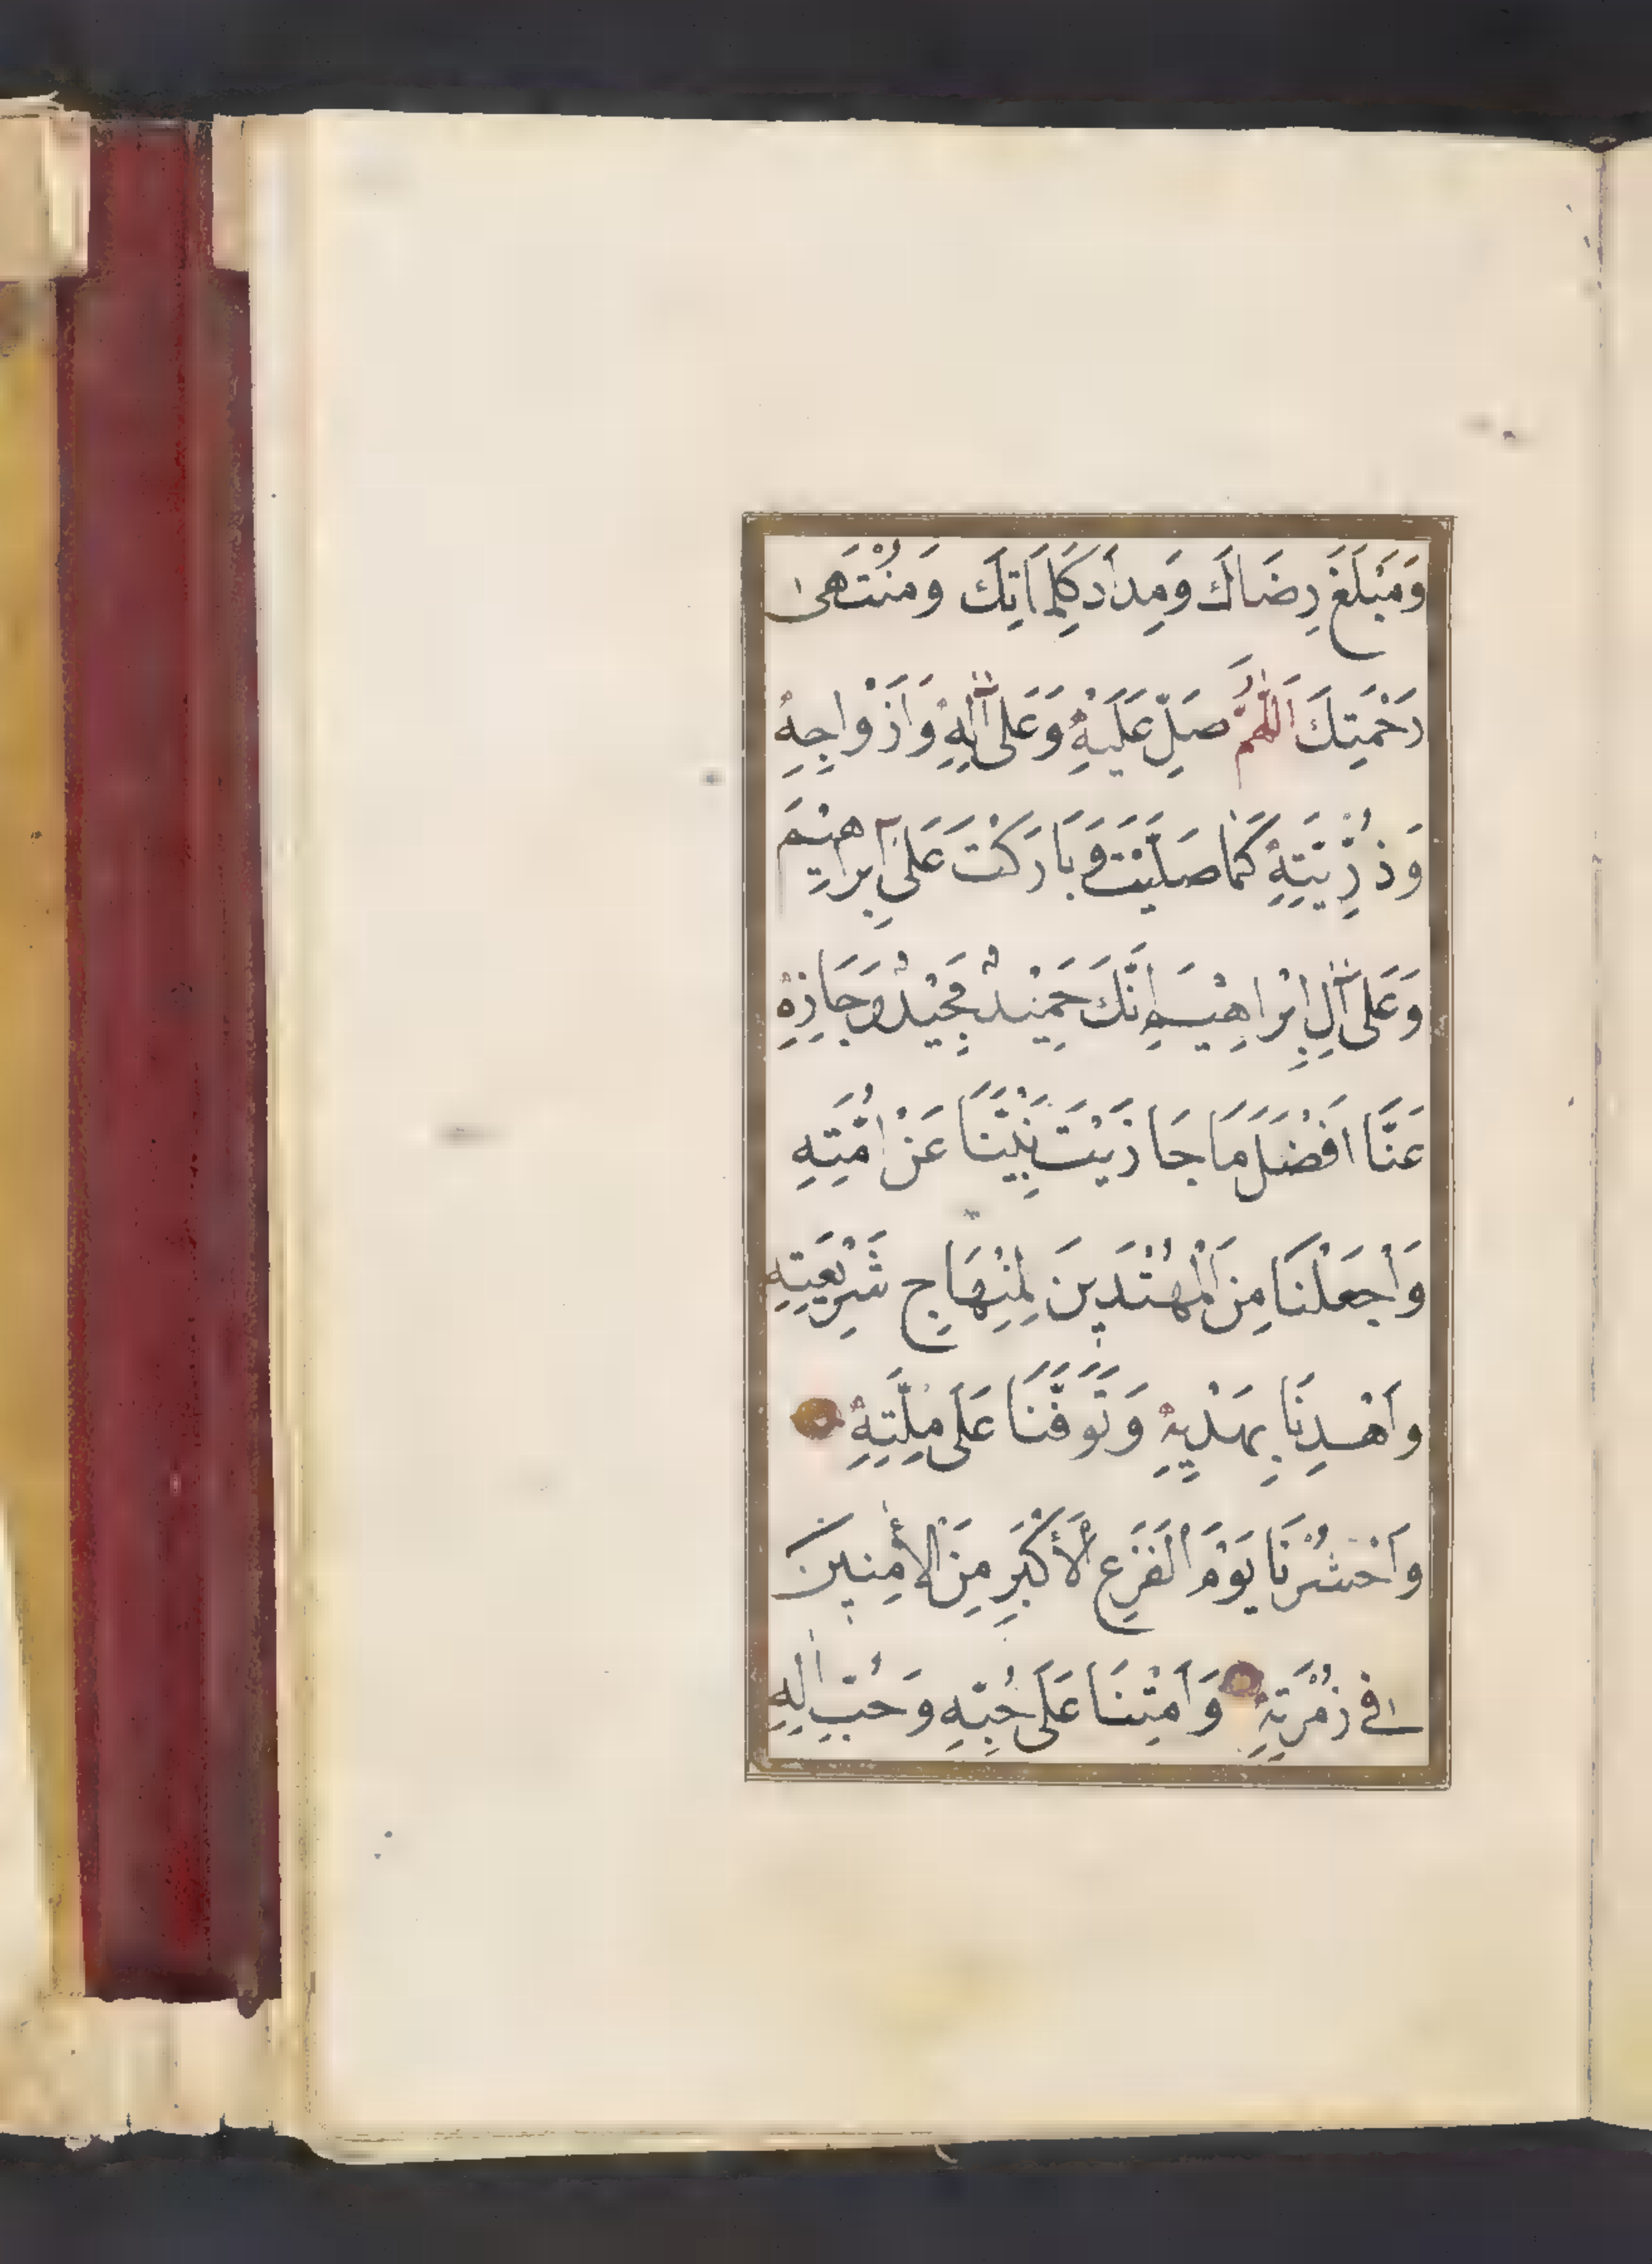 وَمَبْلَغَ رِضَاكَ وَمِدَادَ كَلِمَاتِكَ وَمُنْتَهَى
رَحْمَتِكَ اَللّٰهُمَّ صَلِّ عَلَيْهِ وَعَلَى اٰلِهِ وَاَزْوَاجِهِ
وَذُرِّيَّتِهِ كَمَا صَلَّيْتَ وَبَارَكْتَ عَلَى اِبْرَاهِيْمَ
وَعَلَى اٰلِ اِبْرَاهِيْمَ اِنَّكَ حَمِيْدٌ مَجِيْدٌ وَجَازِهِ
عَنَّا اَفْضَلَ مَا جَازَيْتَ نَبِيًّنَا عَنْ اُمَّتِهِ
وَاْجعَلْنَا مِنَ الْمُهْتَدِينَ لِمِنْهَاجِ شَرِيْعَتِهِ
وَاهْدِنَا بِهَدْيِهِ وَتَوَفَّنَا عَلَى مِلَّتِهِ
وَاحْشُرْنَا يَوْمَ الْفَزَعِ الْأَكْبَرِ مِنَ الْاٰمِنِينَ
فِى زُمْرَتِهِ وَاَمِتْنَا عَلَى حُبِّهِ وَحُبِّ اٰلِهِ